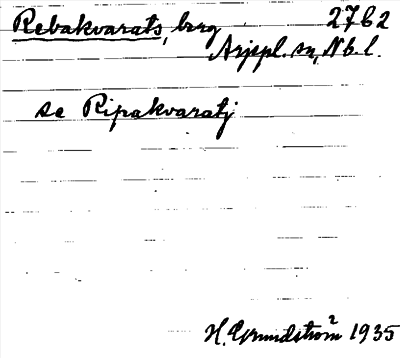 Rebakvarats, berg 27b2
Arjepl. sn, Nb. l.
se Ripakvaratj
H. Grundström² 1935